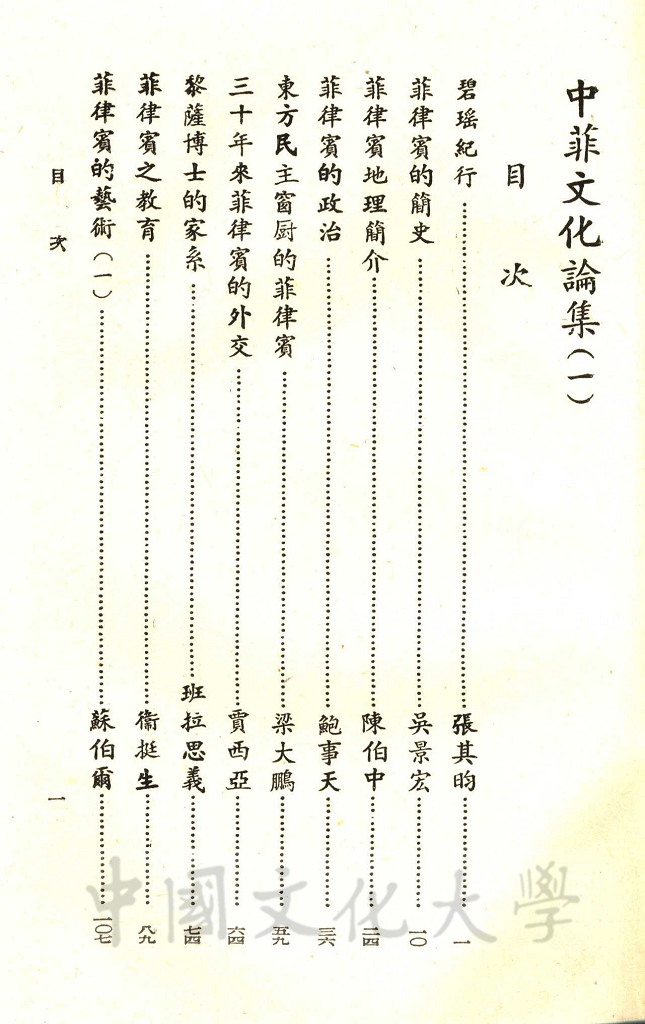 中菲文化論集(一)
目次
碧瑤紀行……張其昀……一
菲律賓的簡史……吳景宏……一〇
菲律賓地理簡介……陳伯中……二四
菲律賓的政治……鮑事天……三六
東方民主窗厨的菲律賓……梁大鵬……五九
三十年來菲律賓的外交……賈西亞……六四
黎薩博士的家系……班拉思義……七四
菲律賓之教育……衞挺生……八九
菲律賓的藝術(一)……蘇伯爾……一〇七
目次
一
中國文化大學